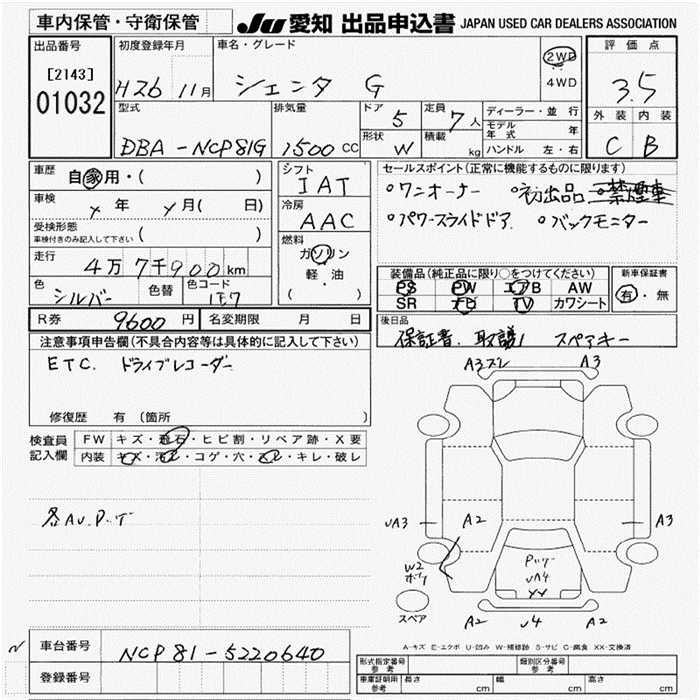 車内保管・守衛保管 JU 愛知 出品申込書 JAPAN USED CAR DEALERS ASSOCIATION
出品番号 初度登録年月 車名・グレード 2WD 4WD 評価点
[2143] 01032 H26 11月 シエンタ G 3.5
型式 排気量 ドア 5 定員 7人 ディーラー・並行 外装 内装
DBA-NCP81G 1500 CC 形状 W 積載 kg モデル年式 年 ハンドル 左・右 C B
車歴 自家用・( ) シフト IAT セールスポイント(正常に機能するものに限ります)
車検 年 月( 日) 冷房 AAC ・ワンオーナー ・初出品 ・禁煙車
受検形態 車検付きのみ記入して下さい ( ) 燃料 ガソリン ・パワースライドドア ・バックモニター
走行 4万7千900km 軽・油 ( ) 装備品(純正品に限り○をつけてください) 新車保証書
色 シルバー 色替 色コード 1F7 PS PW エアB AW 有・無
SR AB TV カワシート
R券 9600円 名変期限 月 日 後日品
保証書、取説、 スペアキー
注意事項申告欄(不具合内容等は具体的に記入して下さい)
ETC. ドライブレコーダー
修復歴 有(箇所 )
検査員記入欄 FW キズ・飛石・ヒビ割・リペア跡・X要
内装 キズ・汚レ・コゲ・穴・スレ・キレ・破レ
各AU.P.
A3スレ A3
UA3 A2 A2 A3
W2
UA4
XX
スペア A2 U4 A2
A-キズ E-エクボ U-凹み W-補修跡 S-サビ C-腐食 XX-交換済
車台番号 NCP81-5220640
登録番号
形式指定番号 参考 類別区分番号 参考
車庫証明用 参考 長さ cm 幅 cm 高さ cm